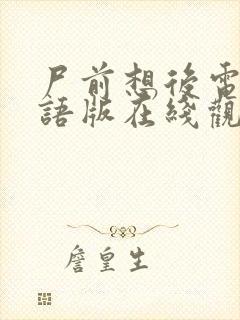 尸前想後電
語版在綫觀
詹皇生